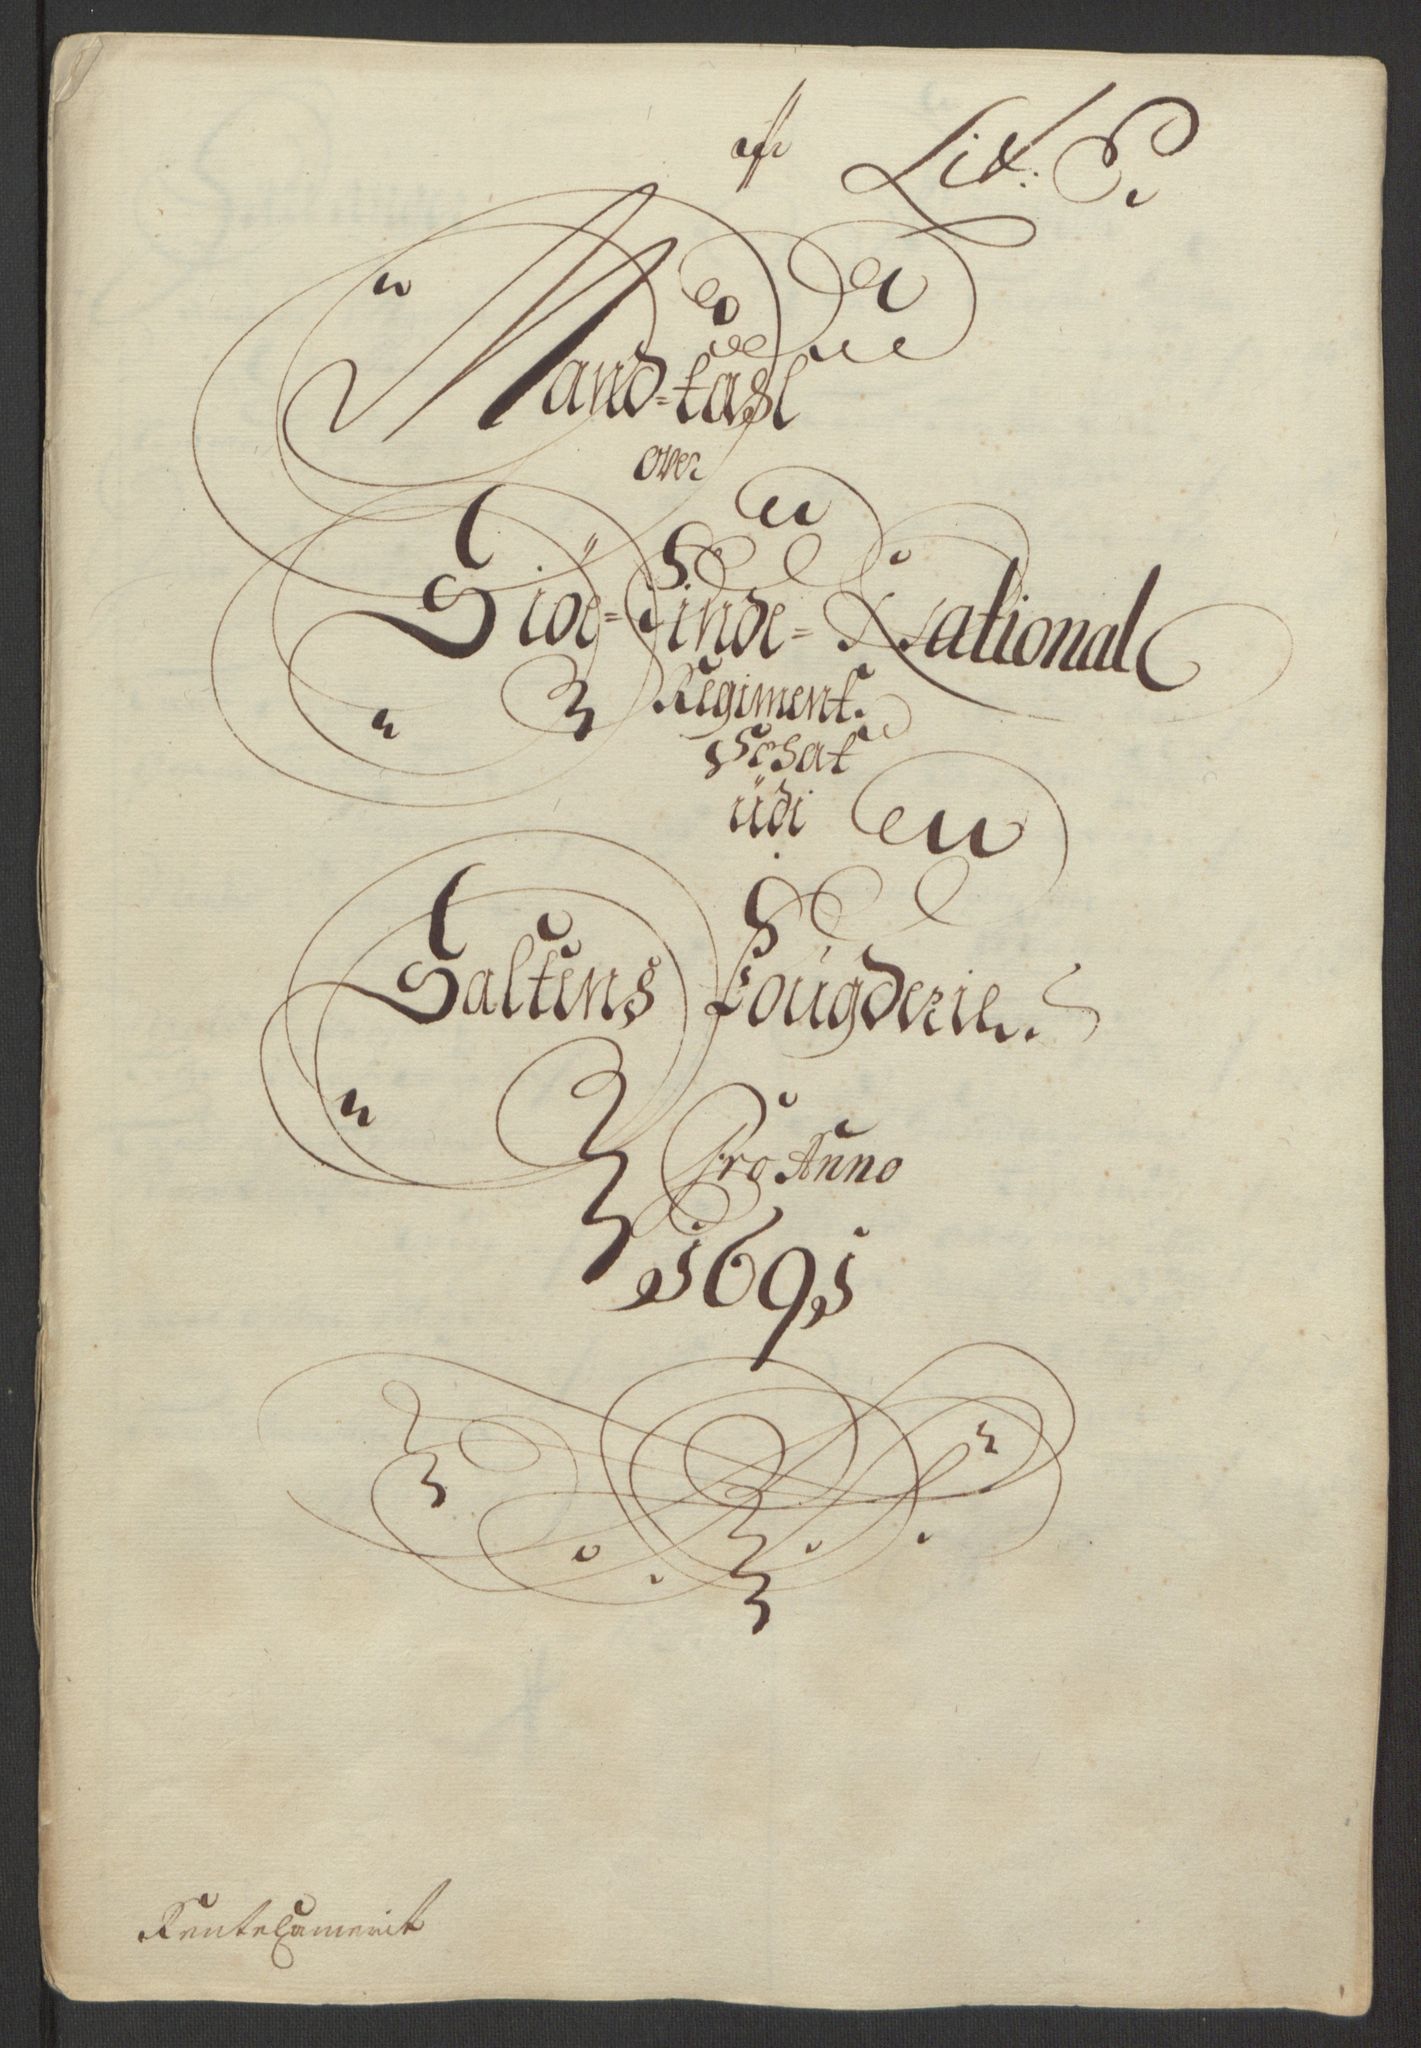 Lit: P.
Mand-tahl
over
Siöe-Finde-National
Regiment
Schat
üdi
Saltens Fougderie.
Pro Anno
1691
RenteCamerit